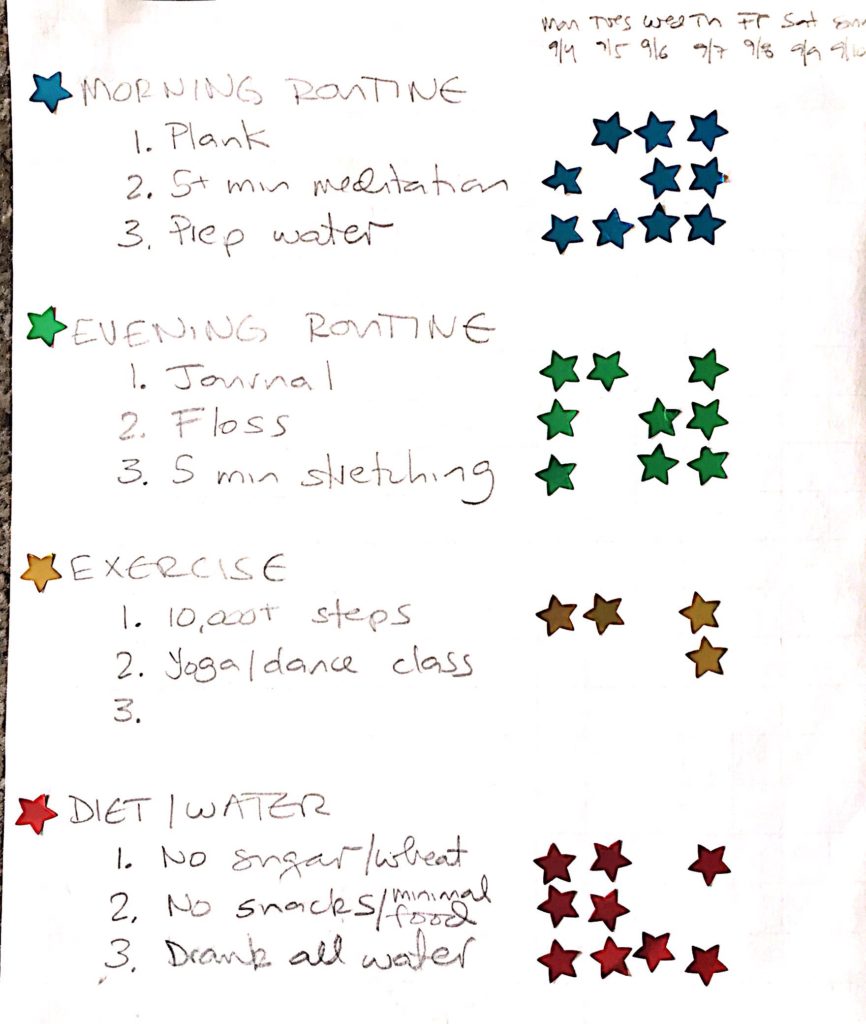 Mon Tues Wed Th Fr Sat Sun
9/4 9/5 9/6 9/7 9/8 9/9 9/10
MORNING ROUTINE
1. Plank
2. 5+ min meditation
3. Prep water
EVENING ROUTINE
1. Journal
2. Floss
3. 5 min stretching
EXERCISE
1. 10,000+ steps
2. Yoga/dance class
3.
DIET/WATER
1. No sugar/wheat
2. No snacks/minimal food
3. Drank all water